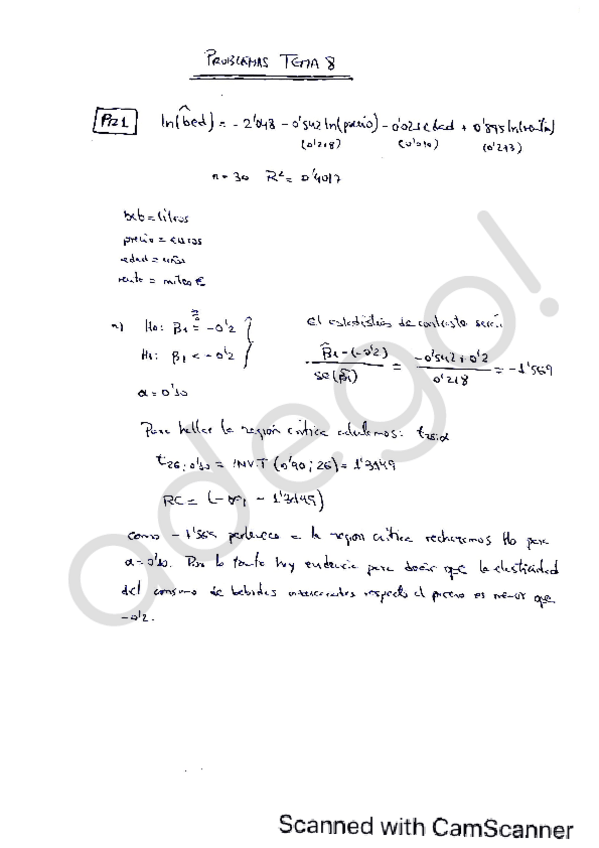 PROBLEMAS TEMA 8
PR1 ln(bed) = -2'048 - 0'542 ln(precio) - 0'021 edad + 0'895 ln(renta)
(0'218) (0'010) (0'293)
n = 30 R² = 0'4017
beb = litros
precio = euros
edad = años
renta = miles €
a) H₀: β₁ = -0'2
H₁: β₁ < -0'2
α = 0'10
El estadístico de contraste será:
β̂₁ - (-0'2) / se(β̂₁) = -0'542 + 0'2 / 0'218 = -1'569
Para hallar la región crítica calculamos: t₂₆;α
t₂₆;₀'₁₀ = INV.T (0'90; 26) = 1'3149
RC = (-∞, -1'3149)
Como -1'569 pertenece a la región crítica rechazamos H₀ para
α = 0'10. Por lo tanto hay evidencia para decir que la elasticidad
del consumo de bebidas respecto al precio es menor que
-0'2.
adego!
Scanned with CamScanner